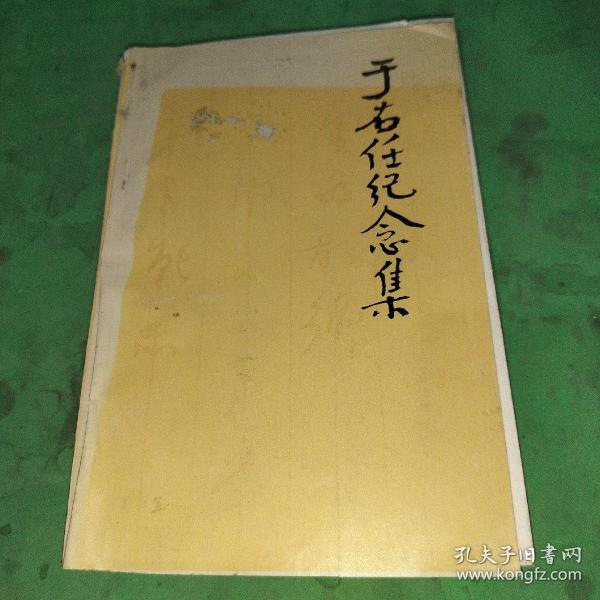 于右任纪念集
孔夫子旧書网
www.kongfz.com